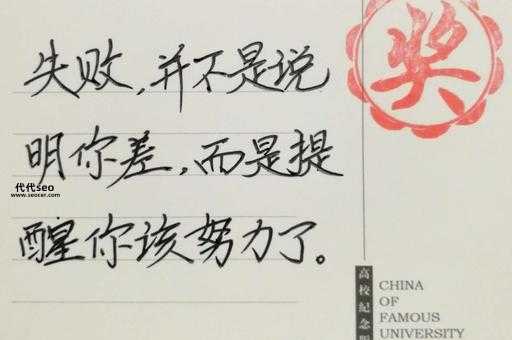 失败,并不是说
明你差,而是提
醒你该努力了。
奖
代代seo
www.seocer.com
高校紀念
CHINA
OF
FAMOUS
UNIVERSITY